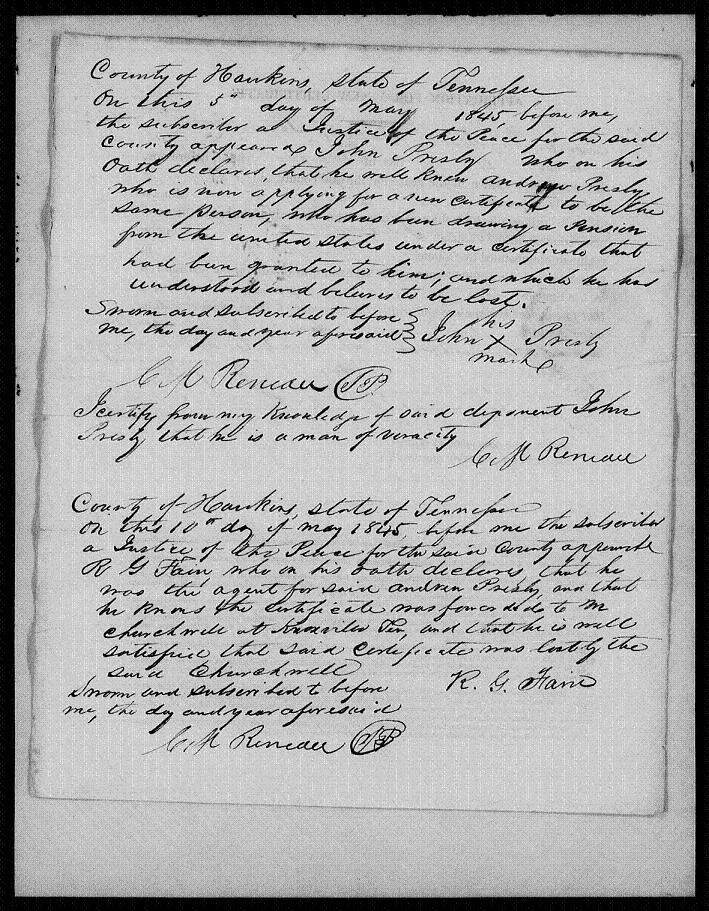 County of Hawkins, state of Tennessee
On this 5th day of May 1845, before me,
the subscriber a Justice of the Peace for the said
County appeared John Presly who on his
Oath declares, that he well knew andrew Presly
who is now applying for a new certificate to be the
same person, who has been drawing a Pension
from the united states under a certificate that
had been granted to him; and which he has
understood and believes to be lost.
Sworn and subscribed to before
me, the day and year aforesaid
his
John X Presly
mark
C M Reneau JP
I certify from my knowledge of said deponent John
Presly that he is a man of veracity
C M Reneau
County of Hawkins, state of Tennessee
On this 10th day of may 1845, before me the subscriber
a Justice of the Peace for the said County appeared
R G Fain who on his oath declares, that he
was the agent for said andrew Presly, and that
he knows the certificate was forwarded to Mr
Churchwell at Knoxville Ten, and that he is well
satisfied that said Certificate was lost by the
said Churchwell
R. G. Fain
Sworn and subscribed to before
me, the day and year aforesaid
C M Reneau JP